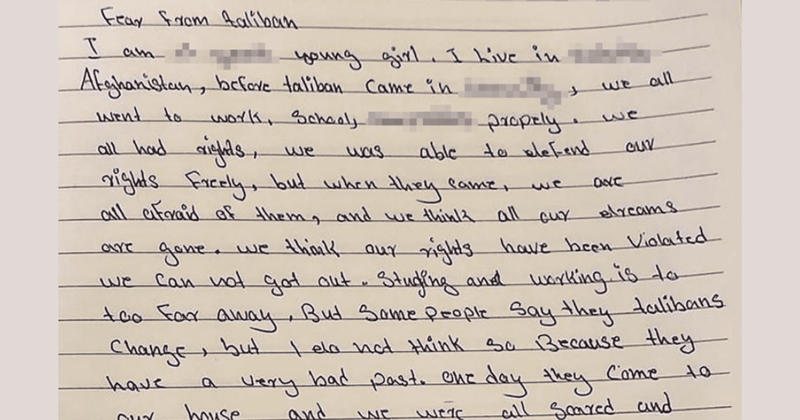 Fear from taliban
I am young girl. I live in
Afghanistan, before taliban came in , we all
went to work, School, propely. we
all had rights, we was able to defend our
rights freely, but when they came, we are
all afraid of them, and we think all our dreams
are gone. we think our rights have been violated
we can not got out. Studing and working is to
too far away, But Some people Say they talibans
Change, but I do not think so Because they
have a very bad past. one day they come to
our house and we were all scared and